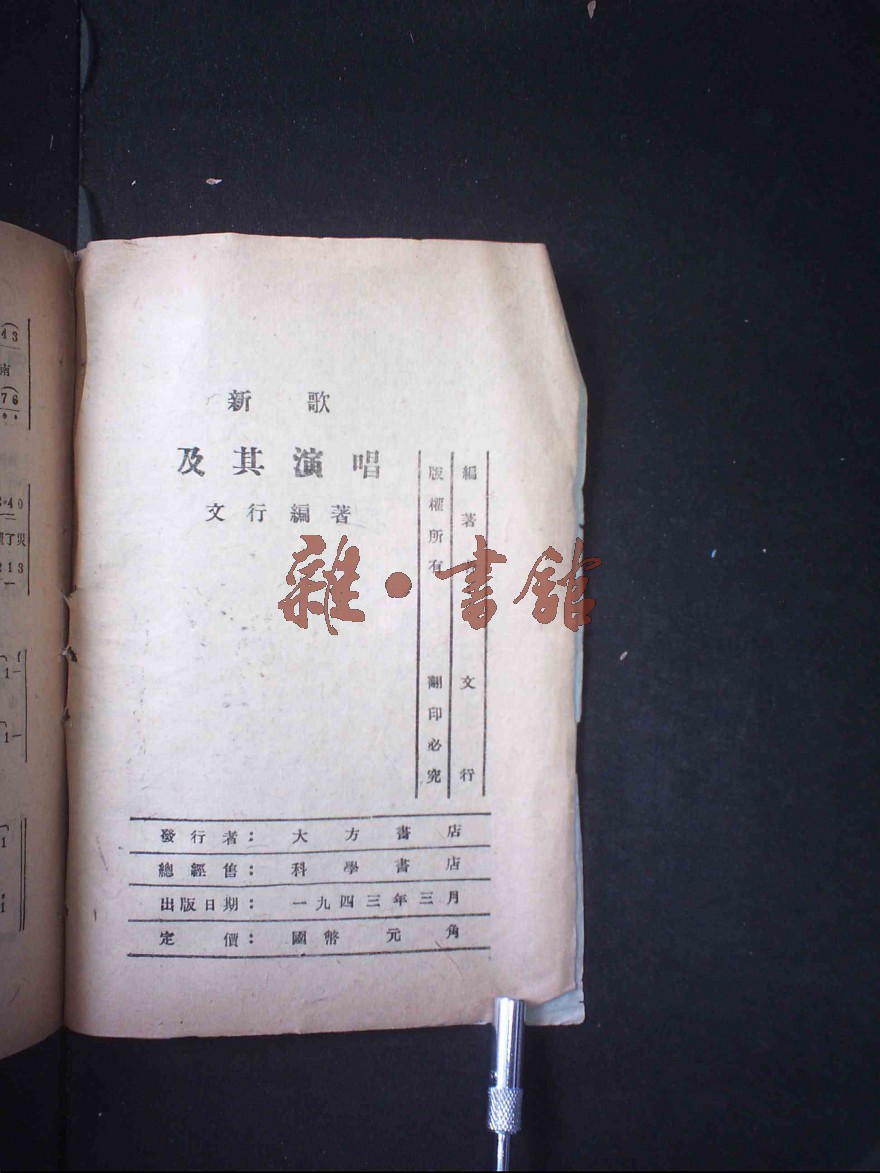 新歌
及其演唱
文行編著
編著 文行
版權所有 翻印必究
發行者：大方書店
總經售：科學書店
出版日期：一九四三年三月
定價：國幣 元 角
雜·書館
43
南
76
213
1-
1-
1
i